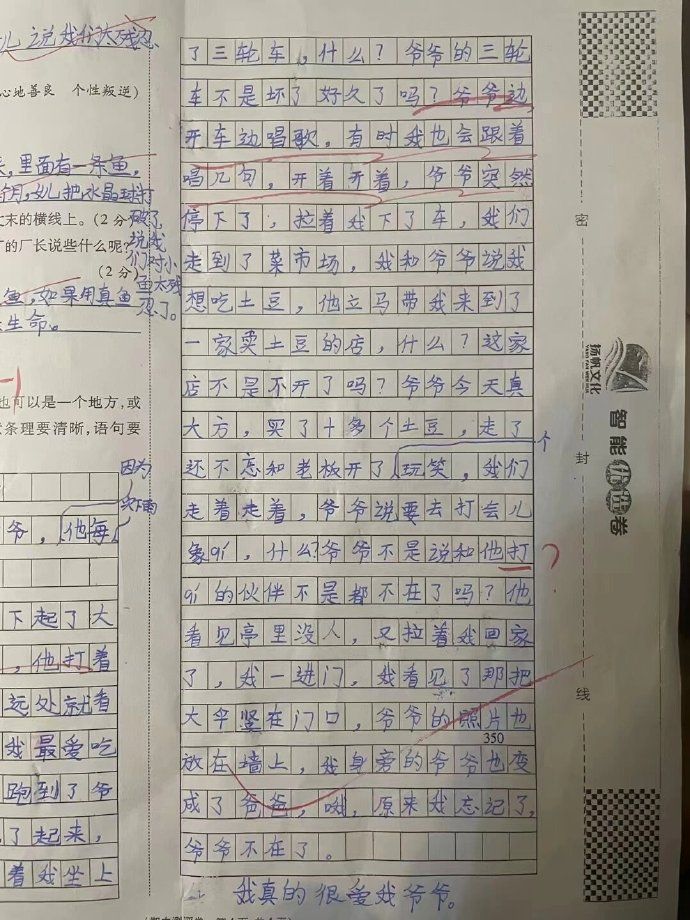 儿说我们太残忍
心地善良 个性叛逆)
里面有一条鱼,
有一个月,女儿把水晶球打
破了,
丈末的横线上。(2分)
说我
的厂长说些什么呢?
们对小
(2分)
鱼太残
鱼,如果用真鱼
忍了。
生命。
也可以是一个地方,或
条理要清晰,语句要
因为
爷,他每
突下雨
下起了大
,他打着
远处就看
我最爱吃
跑到了爷
了起来,
着我坐上
了三轮车,什么?爷爷的三轮
车不是坏了好久了吗?爷爷边
开车边唱歌,有时我也会跟着
唱几句,开着开着,爷爷突然
停下了,拉着我下了车,我们
走到了菜市场,我和爷爷说我
想吃土豆,他立马带我来到了
一家卖土豆的店,什么?这家
店不是不开了吗?爷爷今天真
大方,买了十多个土豆,走了
个
还不忘和老板开了玩笑,我们
走着走着,爷爷说要去打会儿
象qí,什么?爷爷不是说和他打
qí的伙伴不是都不在了吗?他
看见亭里没人,又拉着我回家
了,我一进门,我看见了那把
大伞竖在门口,爷爷的照片也
350
放在墙上,我身旁的爷爷也变
成了爸爸,哦,原来我忘记了,
爷爷不在了。
我真的很爱我爷爷。
密
封
线
扬帆文化
智能优选卷